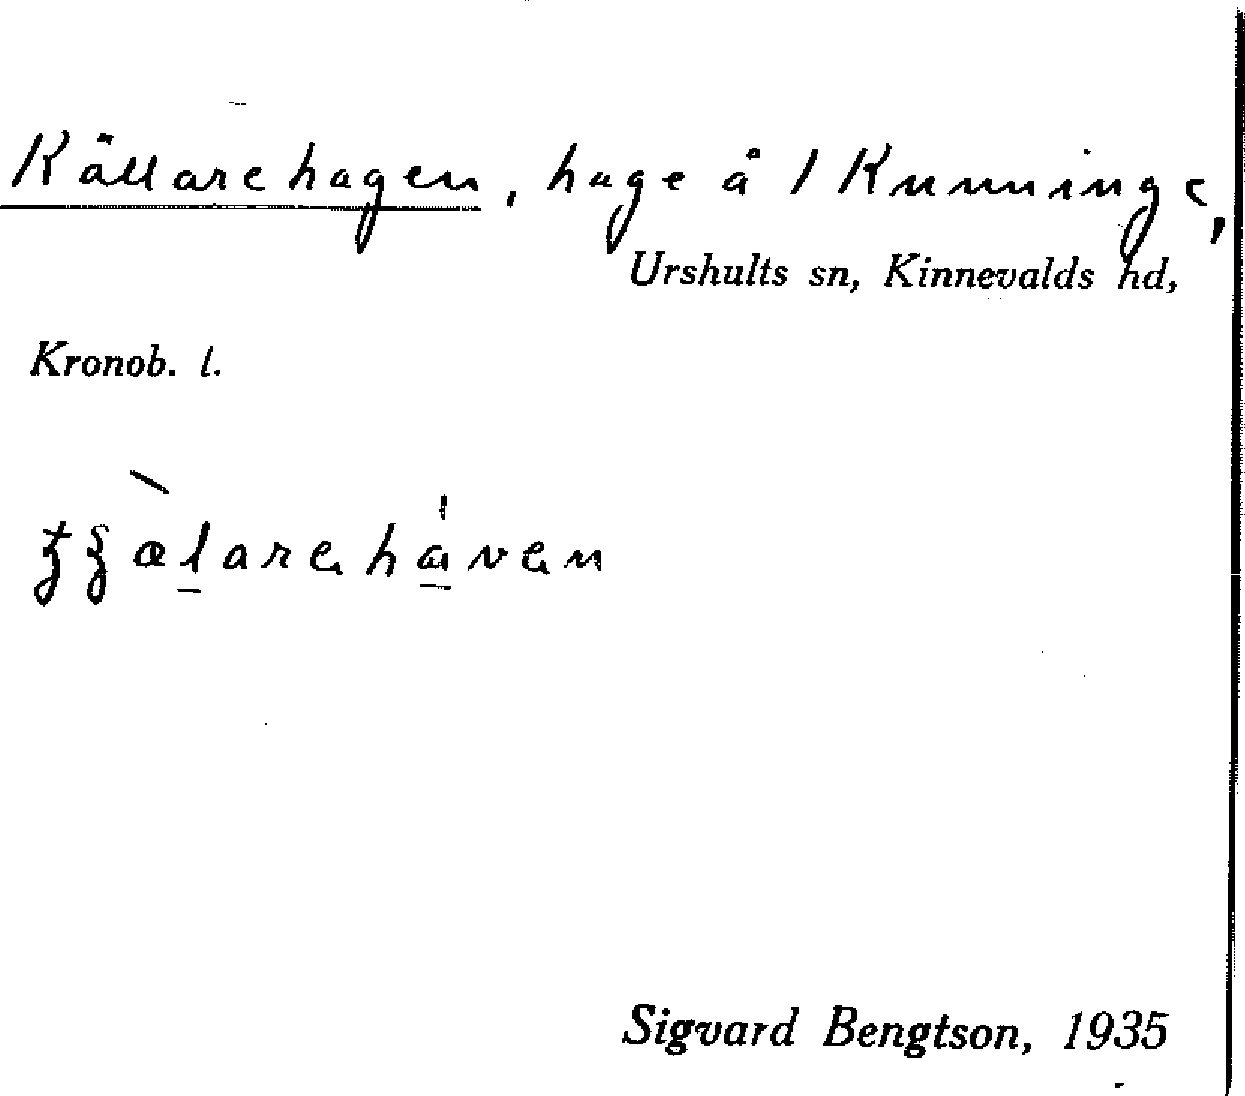 Källarehagen, hage å 1 Kunninge,
Urshults sn, Kinnevalds hd,
Kronob. l.
Sigvard Bengtson, 1935